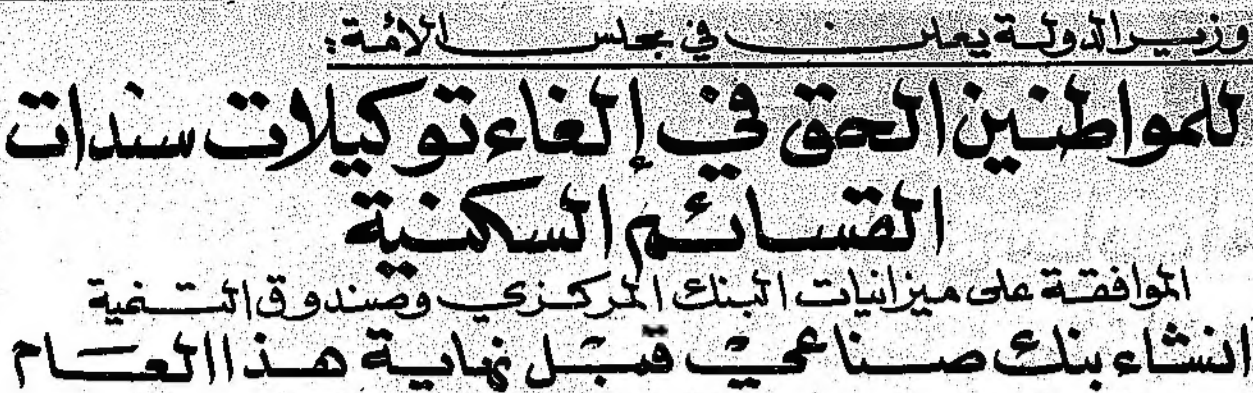 وزير الدولة يعلن في مجلس الأمة:
للمواطنين الحق في إلغاء توكيلات سندات
القسائم السكنية
الموافقة على ميزانيات البنك المركزي وصندوق التنمية
انشاء بنك صناعي قبل نهاية هذا العام